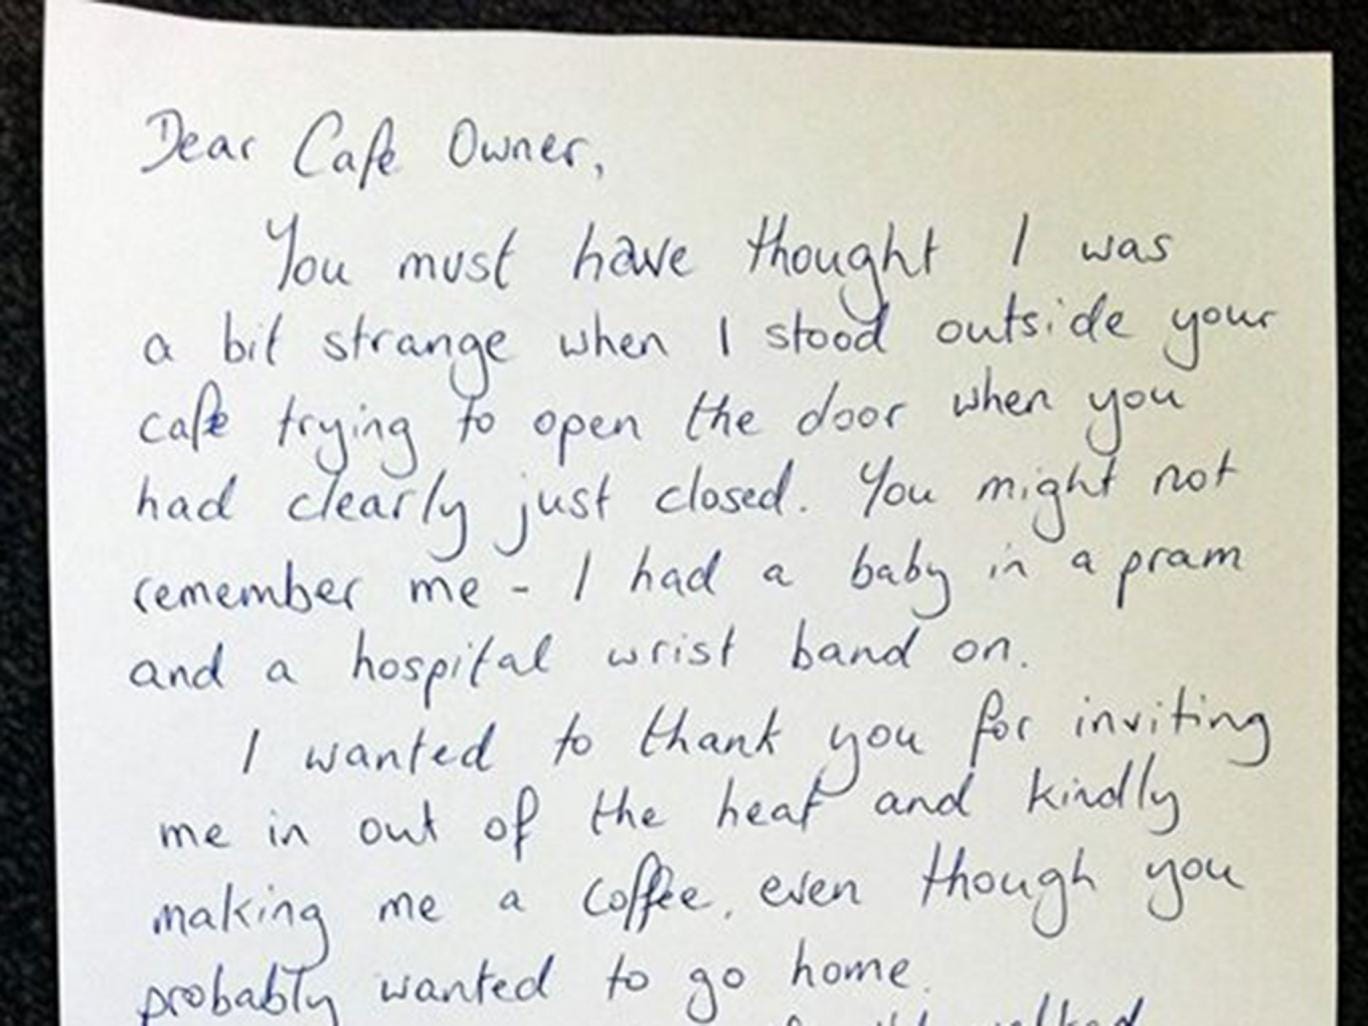 Dear Cafe Owner,
You must have thought I was
a bit strange when I stood outside your
cafe trying to open the door when you
had clearly just closed. You might not
remember me - I had a baby in a pram
and a hospital wrist band on.
I wanted to thank you for inviting
me in out of the heat and kindly
making me a coffee, even though you
probably wanted to go home.